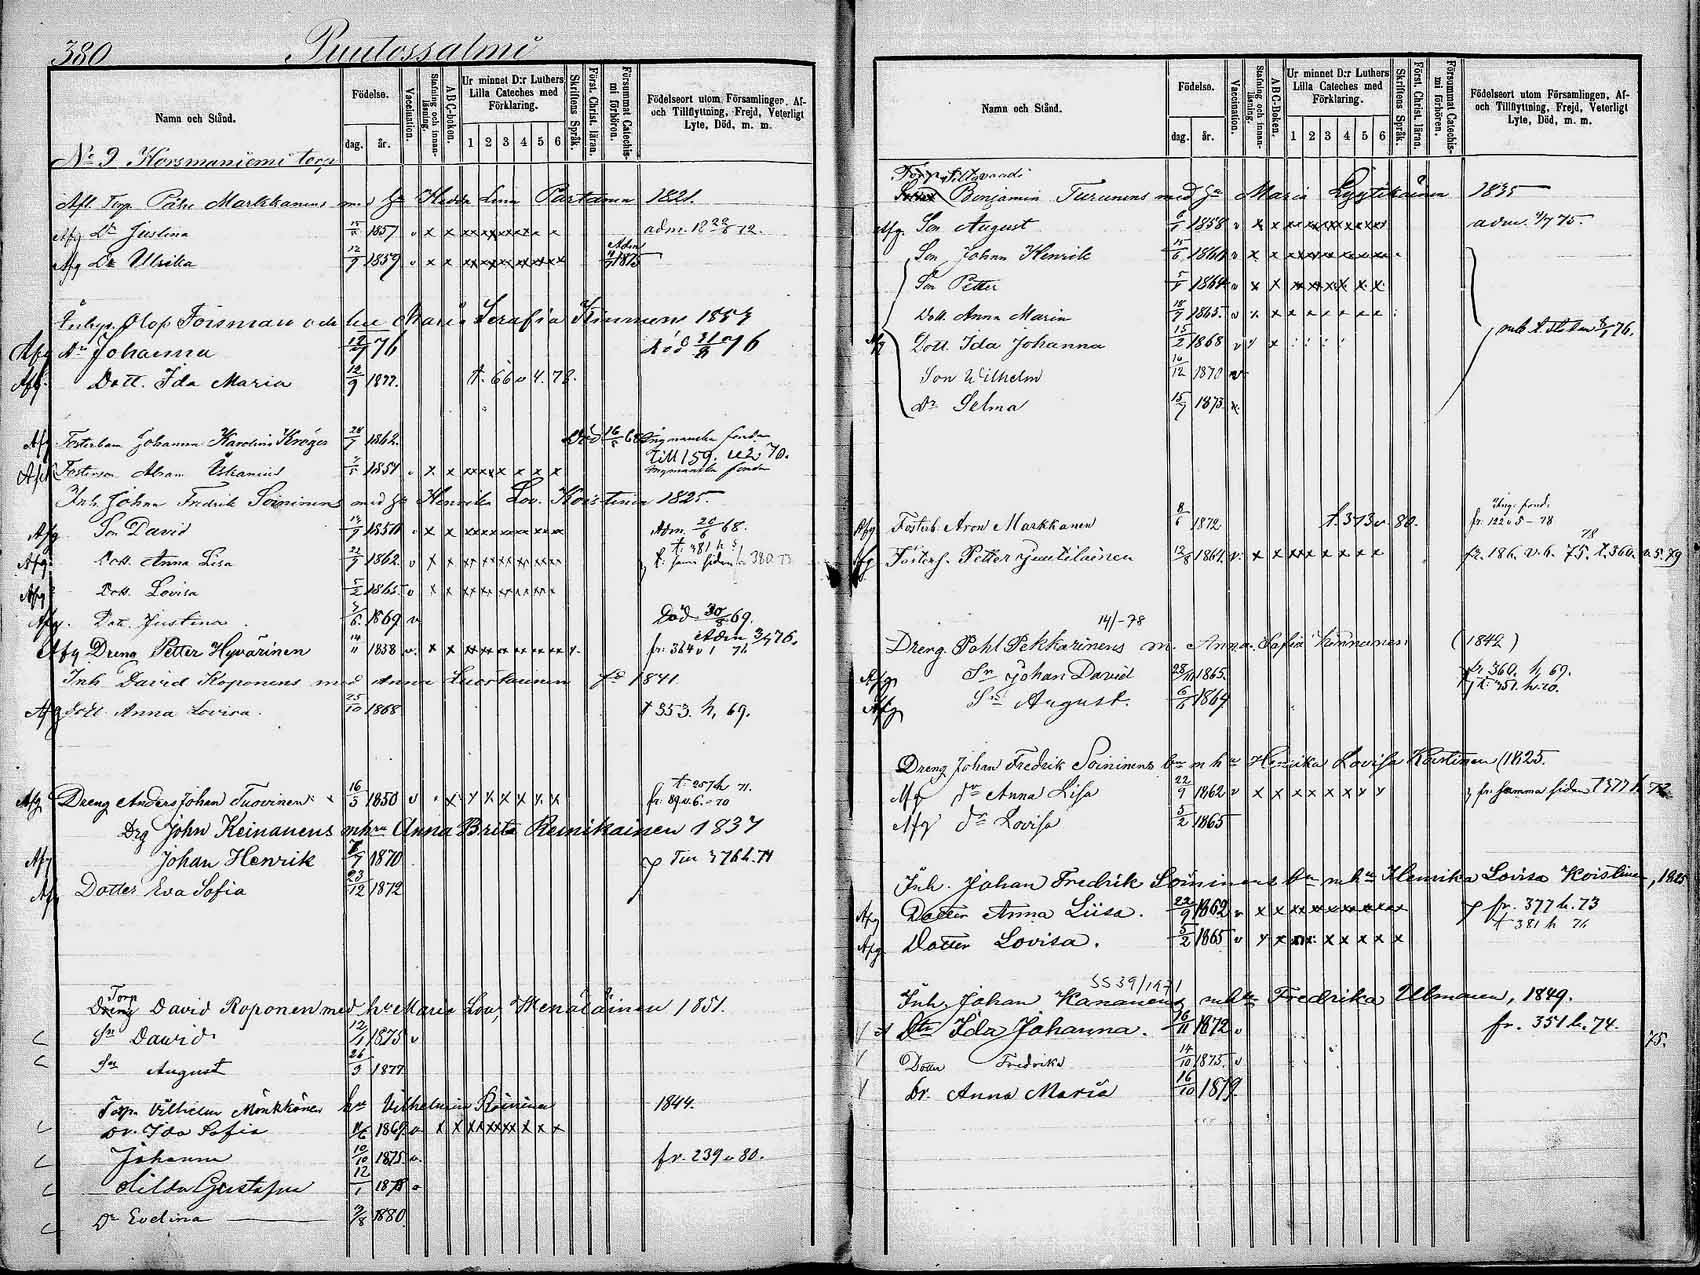 380 Puutossalmi
Namn och Stånd.
Födelse.
dag. år.
Vaccination.
Stafning och innanläsning.
A B C-boken.
Ur minnet D:r Luthers Lilla Cateches med Förklaring.
1 2 3 4 5 6
Skriftens Språk.
Först. Christ. läran.
Försummat Catechismi förhören.
Födelseort utom Församlingen, Af- och Tillflyttning, Frejd, Veterligt Lyte, Död, m. m.
No 9 Korsmaniemi torp
Afl. Torp. Påhr Markkanens med ha Hedda Lena Partanen 1821.
Afg Dr Justina 1857 v x x x x x x x x x x adm. 18 22/8 72.
Afg Dr Ulrika 12/9 1859 v x x x x x x x x x x Adm 1875
Inhys. Olof Toisman och hu Maria Serafia Kinnunen 1853
Afg Dr Johanna 12/9 76 död 31/8 76
Afg. Dott. Ida Maria 12/9 1877. t. 66 v 4. 78.
Afg Fosterbarn Johanna Karolina Kröger 28/7 1862. Död 16/5 68 Ingmanska fonden
Till 159. u 2 70.
Afg Fosterson Abram Uskanius 1854 v x x x x x x x x x Ingmanska fonden
Inh. Johan Fredrik Soininens med ha Henrika Lov. Koistinen 1825.
Afg Son David 1850 v x x x x x x x x x x Adm. 20/6 68.
t. 381 h 5
Afg. Dott. Anna Lisa 22/9 1862 v x x x x x x x x x x t. samma sidan fr 380 73
Afg Dott. Lovisa 5/2 1865 v x x x x x x x x x
Afg. Dott. Justina. 7/6 1869 v Död 30/5 69.
Afg Dreng Petter Hyvärinen 14/11 1838 v. x x x x x x x x x x x. Adm 3/4 76.
fr. 364 v 1 71
Inh. David Koponens med Anna Luostarinen fd 1841.
Afg Dott. Anna Lovisa. 25/10 1868 t 353. h, 69.
t. 257 h 71.
Afg Dreng Anders Johan Tuovinen 16/3 1850 v x x x x x x x fr. 89 v. 6. - 70
Drg John Keinanens m hu Anna Brita Reinikainen 1837
Afg Johan Henrik 7/7 1870 Till 376 h. 74
Af Dotter Eva Sofia 23/12 1872
Torp
Dreng David Koponen med hu Maria Lov. Menäläinen 1851.
Sn David 12/1 1875 v
Sn August 26/3 1877
Torp. Vilhelm Mönkkönen hu Vilhelmiina Räisänen 1844.
Dr. Ida Sofia 1869 v x x x x x x x x x
Johanna 10/10 1875 v. fr. 239 v 80.
Hilda Gustafva 12/1 1878 v
Dr Evelina 9/8 1880
Namn och Stånd.
Födelse.
dag. år.
Vaccination.
Stafning och innanläsning.
A B C-boken.
Ur minnet D:r Luthers Lilla Cateches med Förklaring.
1 2 3 4 5 6
Skriftens Språk.
Först. Christ. läran.
Försummat Catechismi förhören.
Födelseort utom Församlingen, Af- och Tillflyttning, Frejd, Veterligt Lyte, Död, m. m.
Benjamin Turunens med ha Maria Lyytikäinen 1835
Afg. Son August 1858 v x x x x x x x x x adm. 75.
Son Johan Henrik 15/6 1860 v x x x x x x x x x
Son Petter 5/8 1864 v x x x x x x x x
Dott. Anna Maria 18/9 1865. v x x x x x x x x
Afg Dott. Ida Johanna 15/2 1868 v x x
Son Wilhelm 16/12 1870 v
Dr Selma 15/9 1873 x.
Ing. fond.
Afg Fosterb. Aron Markkanen 8/6 1872 t. 373 v. 80. fr. 122 v 5 - 78
78
Afg Fosters. Petter Juutilainen 12/8 1864 v. x x x x x x x x x fr. 186. v. 6. 75. t. 360. v. 5. 79
14/-78
Dreng Pahl Pekkarinens m. Anna Sofia Kinnunen (1842)
Afg Sn Johan David 1865. fr 360. h, 69.
t. 351. h. 70.
Afg Sn August. 6/6 1869
Dreng Johan Fredrik Soininens br m hu Henrika Lovisa Koistinen (1825.
Afg dr Anna Lisa 22/9 1862 v x x x x x x x x fr. samma sidan t 377 h. 72
Afg dr Lovisa 5/2 1865
Inh. Johan Fredrik Soininens br m. hu Henrika Lovisa Koistinen, 1825
Afg Dotter Anna Liisa. 22/9 1862 v x x x x x x x x x x fr. 377 h. 73
t 381 h 74
Afg Dotter Lovisa. 5/2 1865 v x x x x x x x x x
SS 39/1971
Inh. Johan Kananens m hu Fredrika Ulmanen, 1849.
Dtr Ida Johanna. 16/11 1872 v fr. 351 h. 74.
75.
Dotter Fredrika 14/10 1875. v
Dr. Anna Maria 16/10 1879.